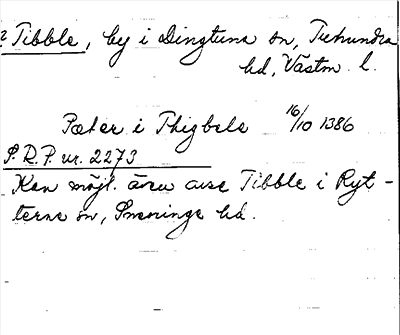 ? Tibble, by i Dingtuna sn, Tuhundra
hd, Västm. l.
Pæter i Thigbele 16/10 1386
S.R.P. nr. 2273
Kan möjl. även avse Tibble i Ryt-
terne sn, Snevringe hd.